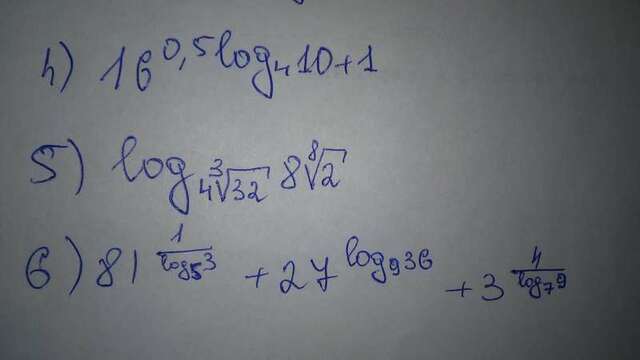 4) 16^{0,5log_4 10+1}
5) log_{4∛32} 8⁸√2
6) 81^{1/log_5 3} + 27^{log_9 36} + 3^{4/log_7 9}